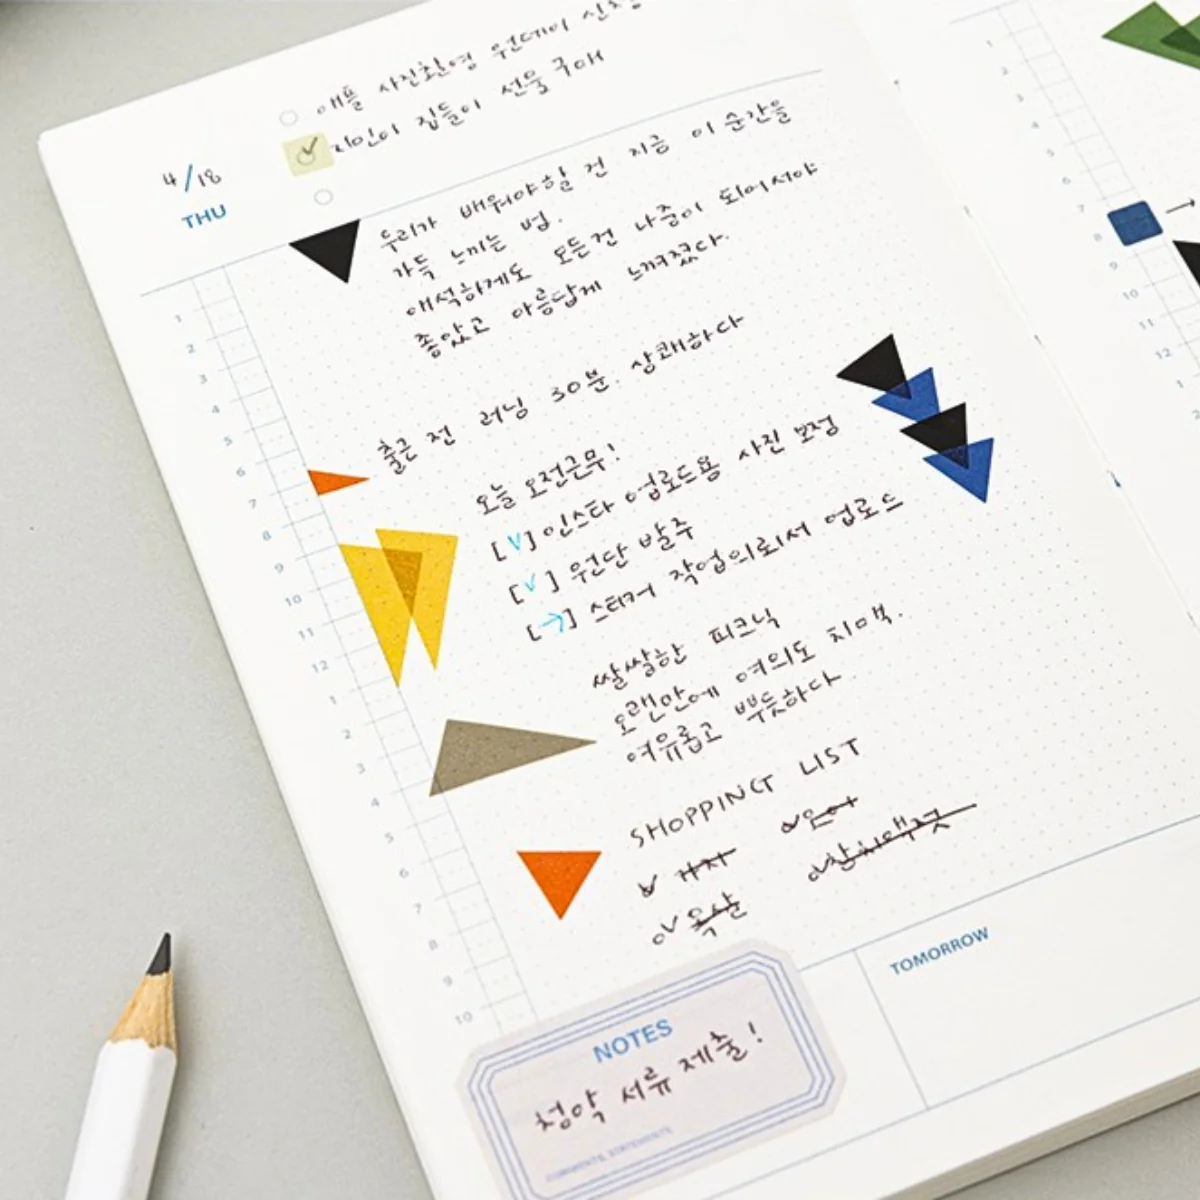 애플 사진촬영 원데이 신청
지인이 집들이 선물 구매
4/18
THU
우리가 배워야할 건 지금 이 순간을
가득 느끼는 법.
애석하게도 모든건 나중이 되어서야
좋았고 아름답게 느껴졌다.
출근 전 러닝 30분. 상쾌하다
오늘 오전근무!
[v] 인스타 업로드용 사진 보정
[v] 원단 발주
[→] 스티커 작업의뢰서 업로드
쌀쌀한 피크닉
오랜만에 여의도 치맥.
여유롭고 뿌듯하다.
SHOPPING LIST
1
2
3
4
5
6
7
8
9
10
11
12
1
2
3
4
5
6
7
8
9
10
NOTES
청약 서류 제출!
TOMORROW
1
2
3
4
5
6
7
8
9
10
11
12
1
2